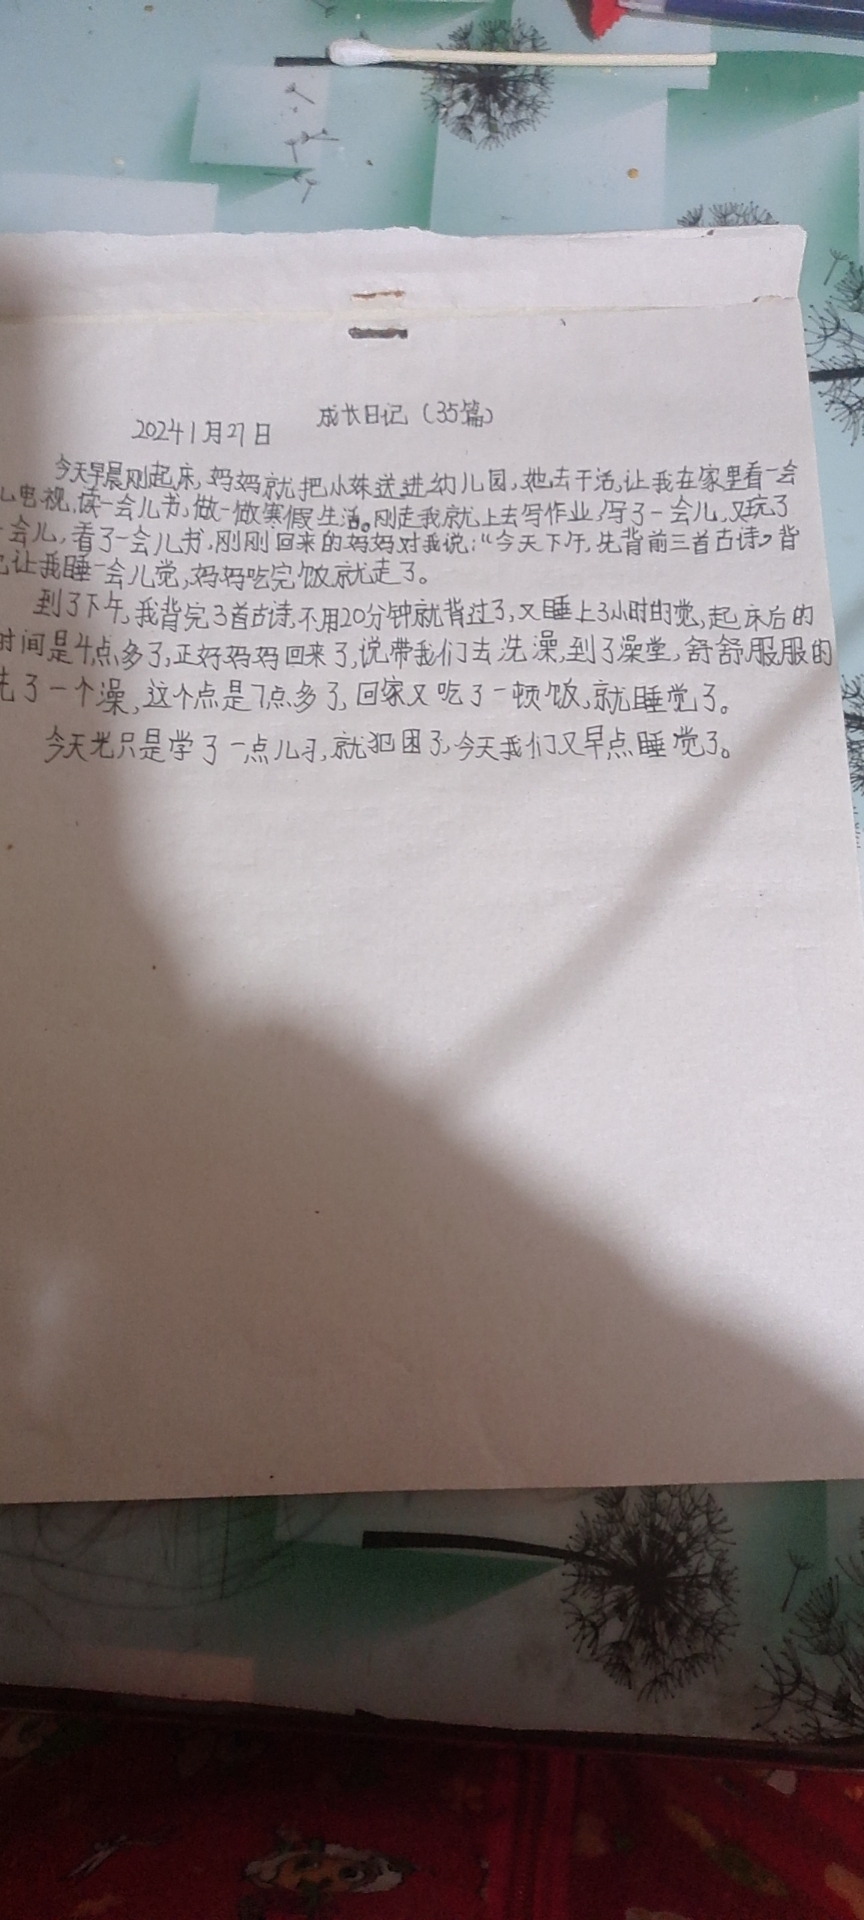 成长日记（35篇）
2024 1月27日
今天早晨刚起床，妈妈就把小妹送进幼儿园，她去干活，让我在家里看一会
儿电视，读一会儿书，做一做寒假生活。刚走我就上去写作业，写了一会儿，又玩了
一会儿，看了一会儿书，刚刚回来的妈妈对我说：“今天下午，先背前三首古诗”背
让我睡一会儿觉，妈妈吃完饭就走了。
到了下午，我背完3首古诗，不用20分钟就背过了，又睡上3小时的觉，起床后的
时间是4点多了，正好妈妈回来了，说带我们去洗澡，到了澡堂，舒舒服服的
洗了一个澡，这个点是7点多了，回家又吃了一顿饭，就睡觉了。
今天光只是学了一点儿习，就犯困了，今天我们又早点睡觉了。